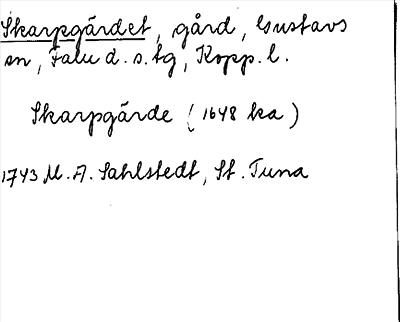 Skarpgärdet, gård, Gustavs
sn, Falu d.s.tg, Kopp. l.
Skarpgärde (1648 ka)
1743 M. A. Sahlstedt, St. Tuna